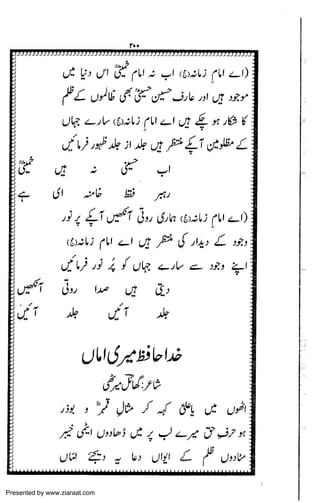 ۲۰۰
(اے امام زمانہ(ع) اب نہ امام خمینیؒ اس دنیا میں
موجود ہیں اور نہ عارف حسینؒ حسینی بھی ظالموں کے ظلم
کا شکار ہو چکے ہیں اے امام زمانہ(ع) سارے جہاں
کے مظلومین آپکے منتظر ہیں جلد از جلد ظہور فرمائیں
اب حسینیؒ نہ ہیں خمینیؒ
رہبر فقط خامنہ ای ہے
(اے امام زمانہ(ع) ہماری روتی آنکھیں آپکے پر نور
وجود کے دیدار کی منتظر ہیں اے امام زمانہ(ع)
اپنے وجود سے سارے جہاں کو پر نور فرمائیں
دیتی ہیں صدا روتی آنکھیں
جلد آئیں جلد آئیں
خدا حافظ میری اماں
شاعر: گھائل میرٹھی
اٹھوں میں یاعلیؑ کہہ کر مثال قمبرؓ و بوذر
ہر حرف حق میرے لب پر میں ڈھادوں اپنی خیبر
مٹادوں ظلم کے ایواں دعا یہ دیجئے اماں
Presented by www.ziaraat.com